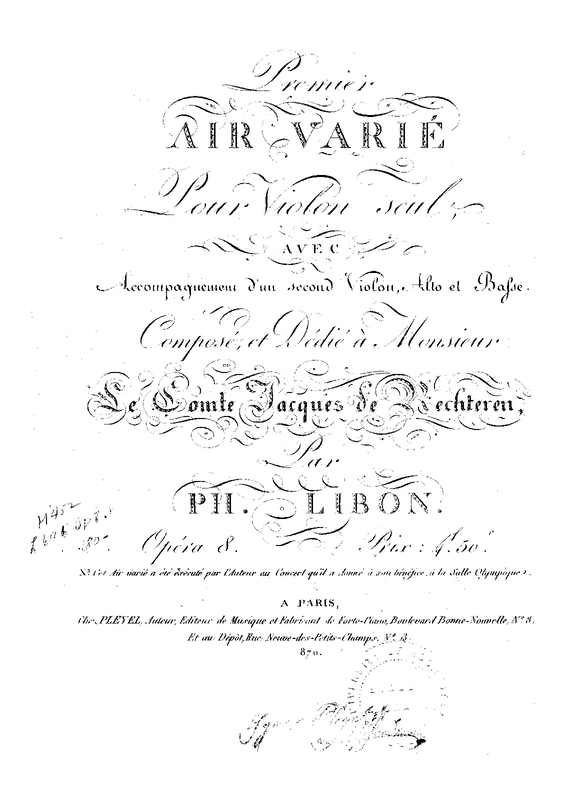 Premier
AIR VARIÉ
Pour Violon seul,
AVEC
Accompagnement d'un second Violon, Alto et Basse.
Composé, et Dédié à Monsieur
Le Comte Jacques de Rechteren,
Par
PH. LIBON.
M452
L696 Op8
Opéra 8. Prix: 4f. 50c.
Na Cet Air varié a été éxécuté par l'Auteur au Concert qu'il a donné à son bénéfice, à la Salle Olympique.
A PARIS,
Chez PLEYEL, Auteur, Editeur de Musique et Fabricant de Forte-Piano, Boulevard Bonne-Nouvelle, No. 8.
Et au Dépôt, Rue Neuve-des-Petits-Champs, No. 13.
870.